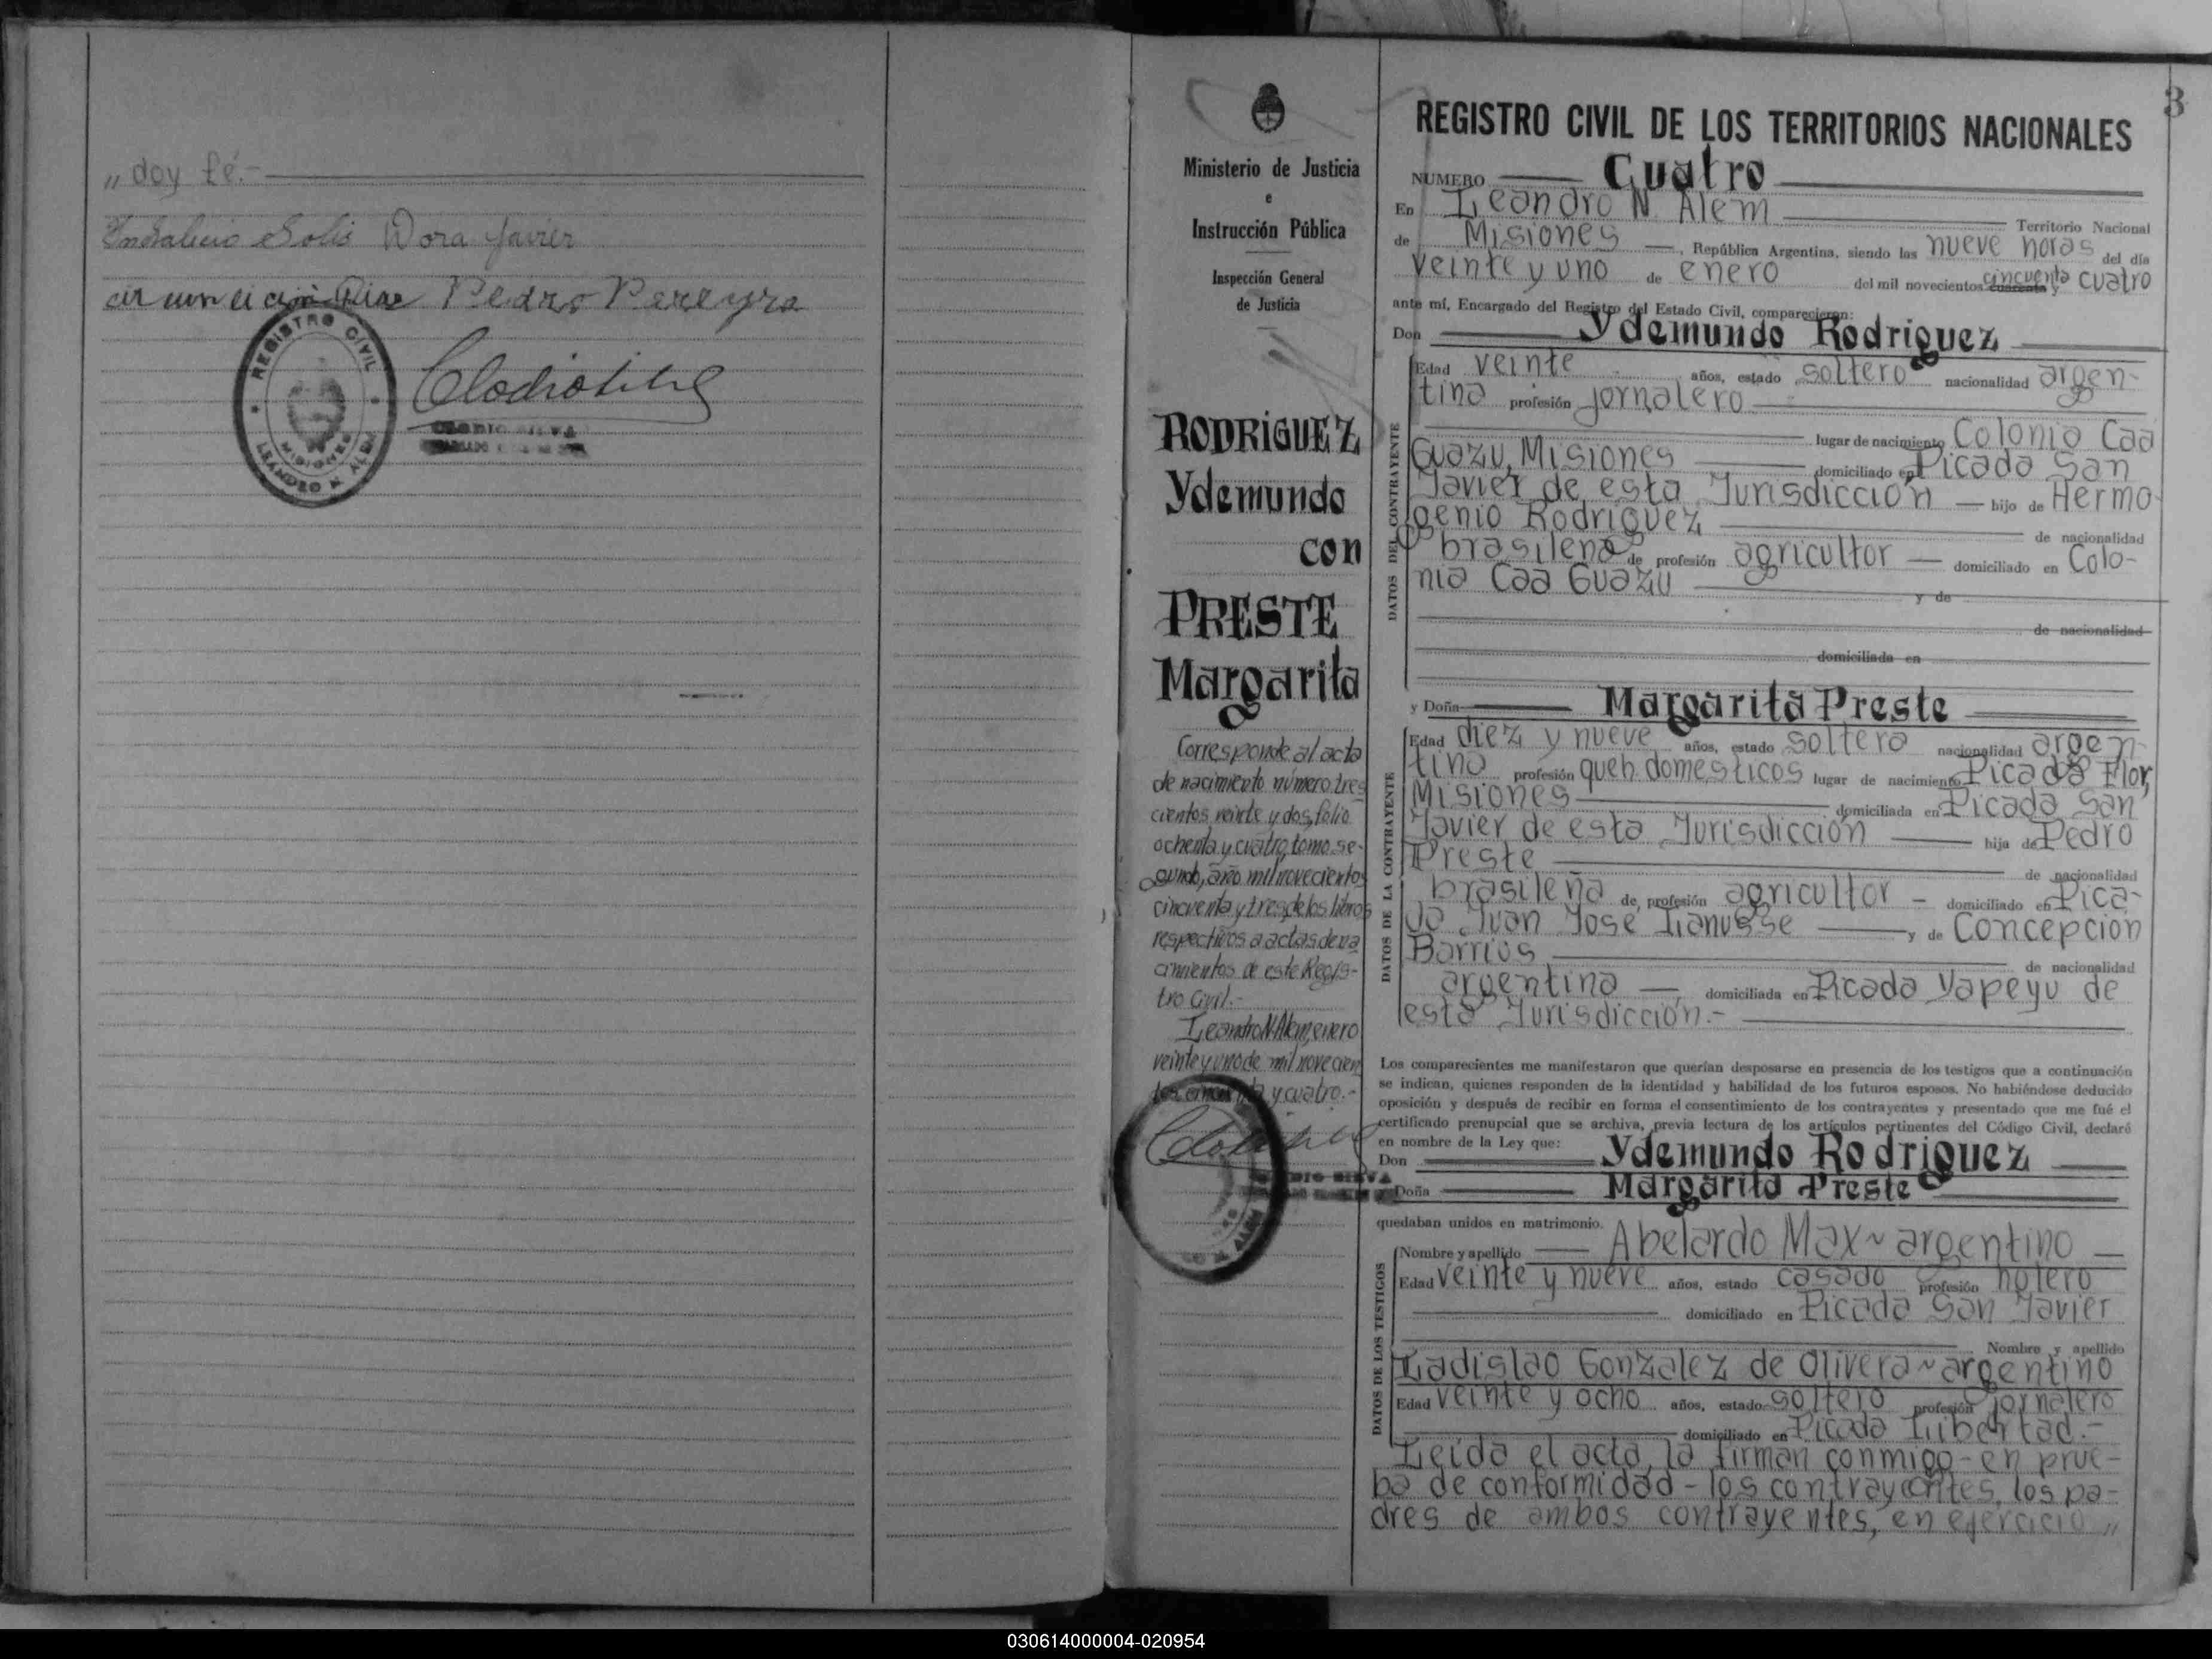 „ doy fé.-
Indalicio Solis Dora Javier
Pedro Pereyra
REGISTRO CIVIL
MISIONES
LEANDRO N. ALEM
Ministerio de Justicia
e
Instrucción Pública
Inspección General
de Justicia
RODRIGUEZ
Ydemundo
con
PRESTE
Margarita
Corresponde al acta
de nacimiento número tres
cientos veinte y dos, folio
ochenta y cuatro, tomo se-
gundo, año mil novecientos
cincuenta y tres, de los libros
respectivos a actas de na
cimientos de este Regis-
tro Civil.-
Leandro N. Alem, enero
veinte y uno de mil novecien
tos cincuenta y cuatro.-
3
REGISTRO CIVIL DE LOS TERRITORIOS NACIONALES
NUMERO Cuatro
En Leandro N. Alem Territorio Nacional
de Misiones, República Argentina, siendo las nueve horas del día
veinte y uno de enero del mil novecientos cuarenta y cincuenta cuatro
ante mí, Encargado del Registro del Estado Civil, comparecieron:
Don Ydemundo Rodriguez
DATOS DEL CONTRAYENTE
Edad veinte años, estado soltero nacionalidad argen-
tina profesión jornalero
lugar de nacimiento Colonia Caá
Guazú, Misiones domiciliado en Picada San
Javier de esta Jurisdicción — hijo de Hermo-
genio Rodriguez de nacionalidad
brasileña de profesión agricultor — domiciliado en Colo-
nia Caá Guazú y de
de nacionalidad
domiciliada en
y Doña Margarita Preste
DATOS DE LA CONTRAYENTE
Edad diez y nueve años, estado soltera nacionalidad argen-
tina profesión queh. domesticos lugar de nacimiento Picada Flor,
Misiones domiciliada en Picada San
Javier de esta Jurisdicción hija de Pedro
Preste de nacionalidad
brasileña de profesión agricultor - domiciliado en Pica-
da Juan José Lanusse y de Concepción
Barrios de nacionalidad
argentina — domiciliada en Picada Yapeyú de
esta Jurisdicción.-
Los comparecientes me manifestaron que querían desposarse en presencia de los testigos que a continuación
se indican, quienes responden de la identidad y habilidad de los futuros esposos. No habiéndose deducido
oposición y después de recibir en forma el consentimiento de los contrayentes y presentado que me fué el
certificado prenupcial que se archiva, previa lectura de los artículos pertinentes del Código Civil, declaré
en nombre de la Ley que:
Don Ydemundo Rodriguez
Doña Margarita Preste
quedaban unidos en matrimonio.
DATOS DE LOS TESTIGOS
Nombre y apellido Abelardo Max ~ argentino
Edad veinte y nueve años, estado casado profesión hotero
domiciliado en Picada San Javier
Nombre y apellido
Ladislao Gonzalez de Olivera ~ argentino
Edad veinte y ocho años, estado soltero profesión jornalero
domiciliado en Picada Libertad.-
Leída el acta, la firman conmigo - en prue-
ba de conformidad - los contrayentes, los pa-
dres de ambos contrayentes, en ejercicio „
030614000004-020954